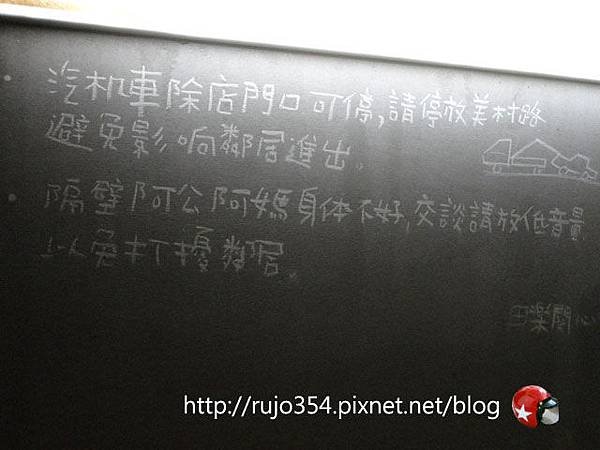 • 汽机車除店門口可停,請停放美村路
避免影响鄰居進出。
• 隔壁阿公阿媽身体不好,交談請放低音量
以免打擾鄰居。
田樂關心
http://rujo354.pixnet.net/blog